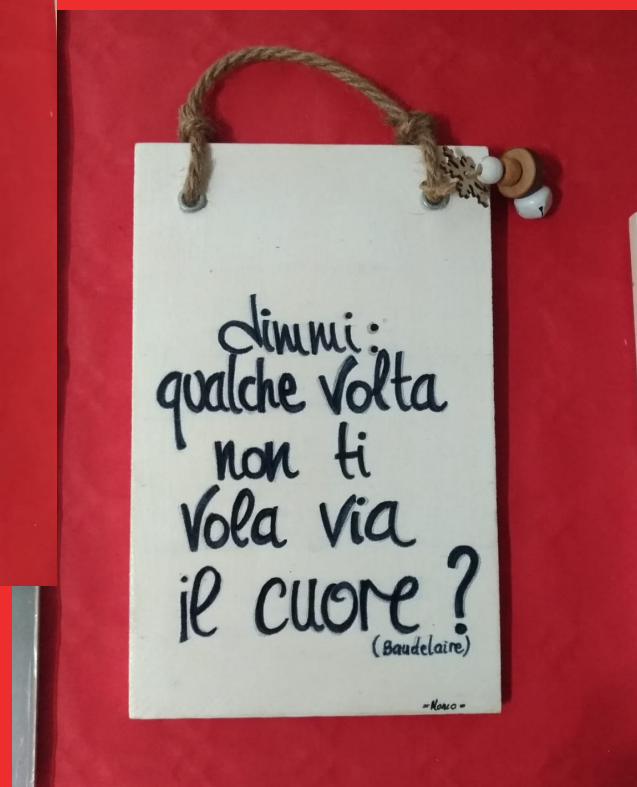 dimmi:
qualche volta
non ti
vola via
il cuore?
(Baudelaire)